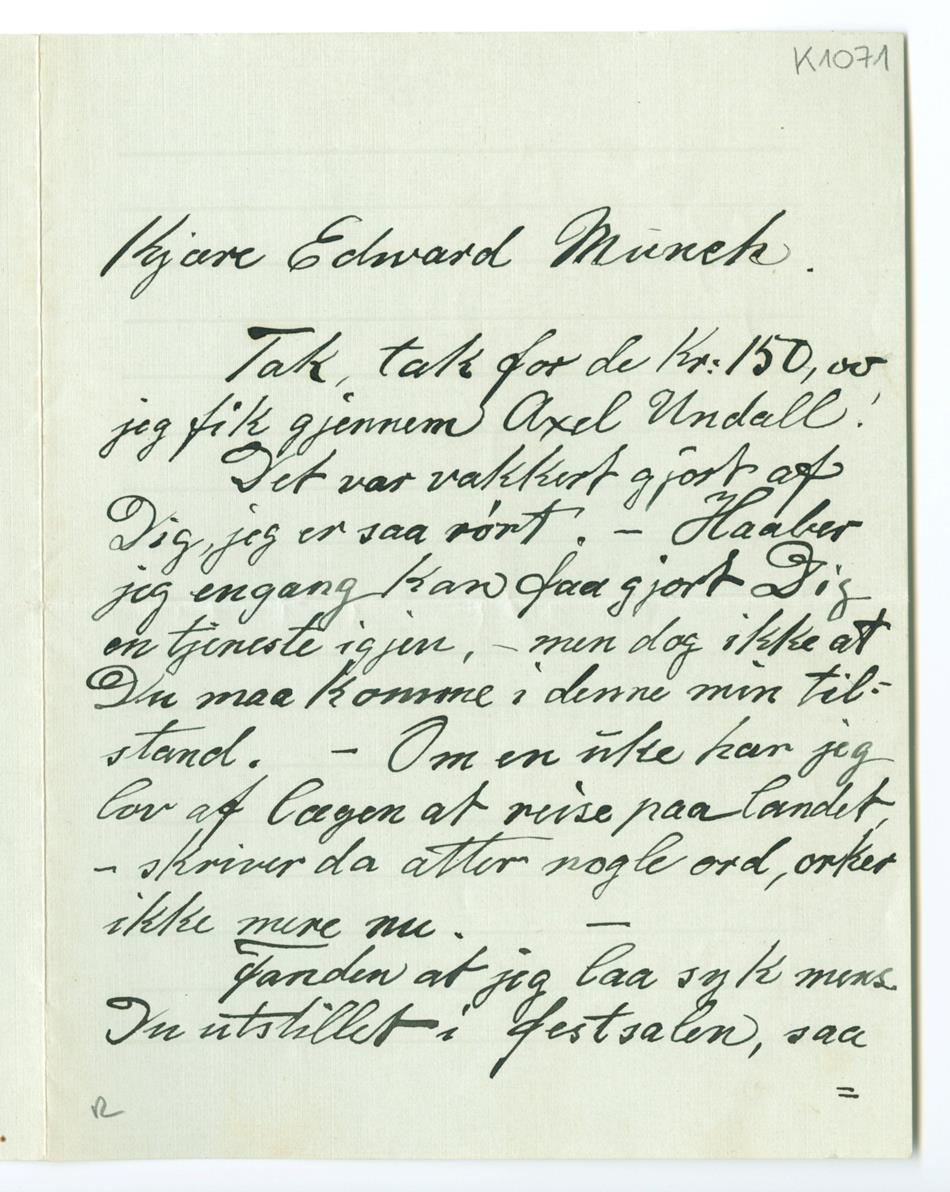 K1071
Kjære Edward Munch.
Tak, tak for de Kr: 150,00
jeg fik gjennem Axel Undall!
Det var vakkert gjort af
Dig, jeg er saa rórt. – Haaber
jeg engang kan faa gjort Dig
en tjeneste igjen, – men dog ikke at
Du maa komme i denne min til=
stand. – Om en uke har jeg
lov af lægen at reise paa landet,
– skriver da atter nogle ord, orker
ikke mere nu. –
Fanden at jeg laa syk mens
Du utstillet i festsalen, saa
=